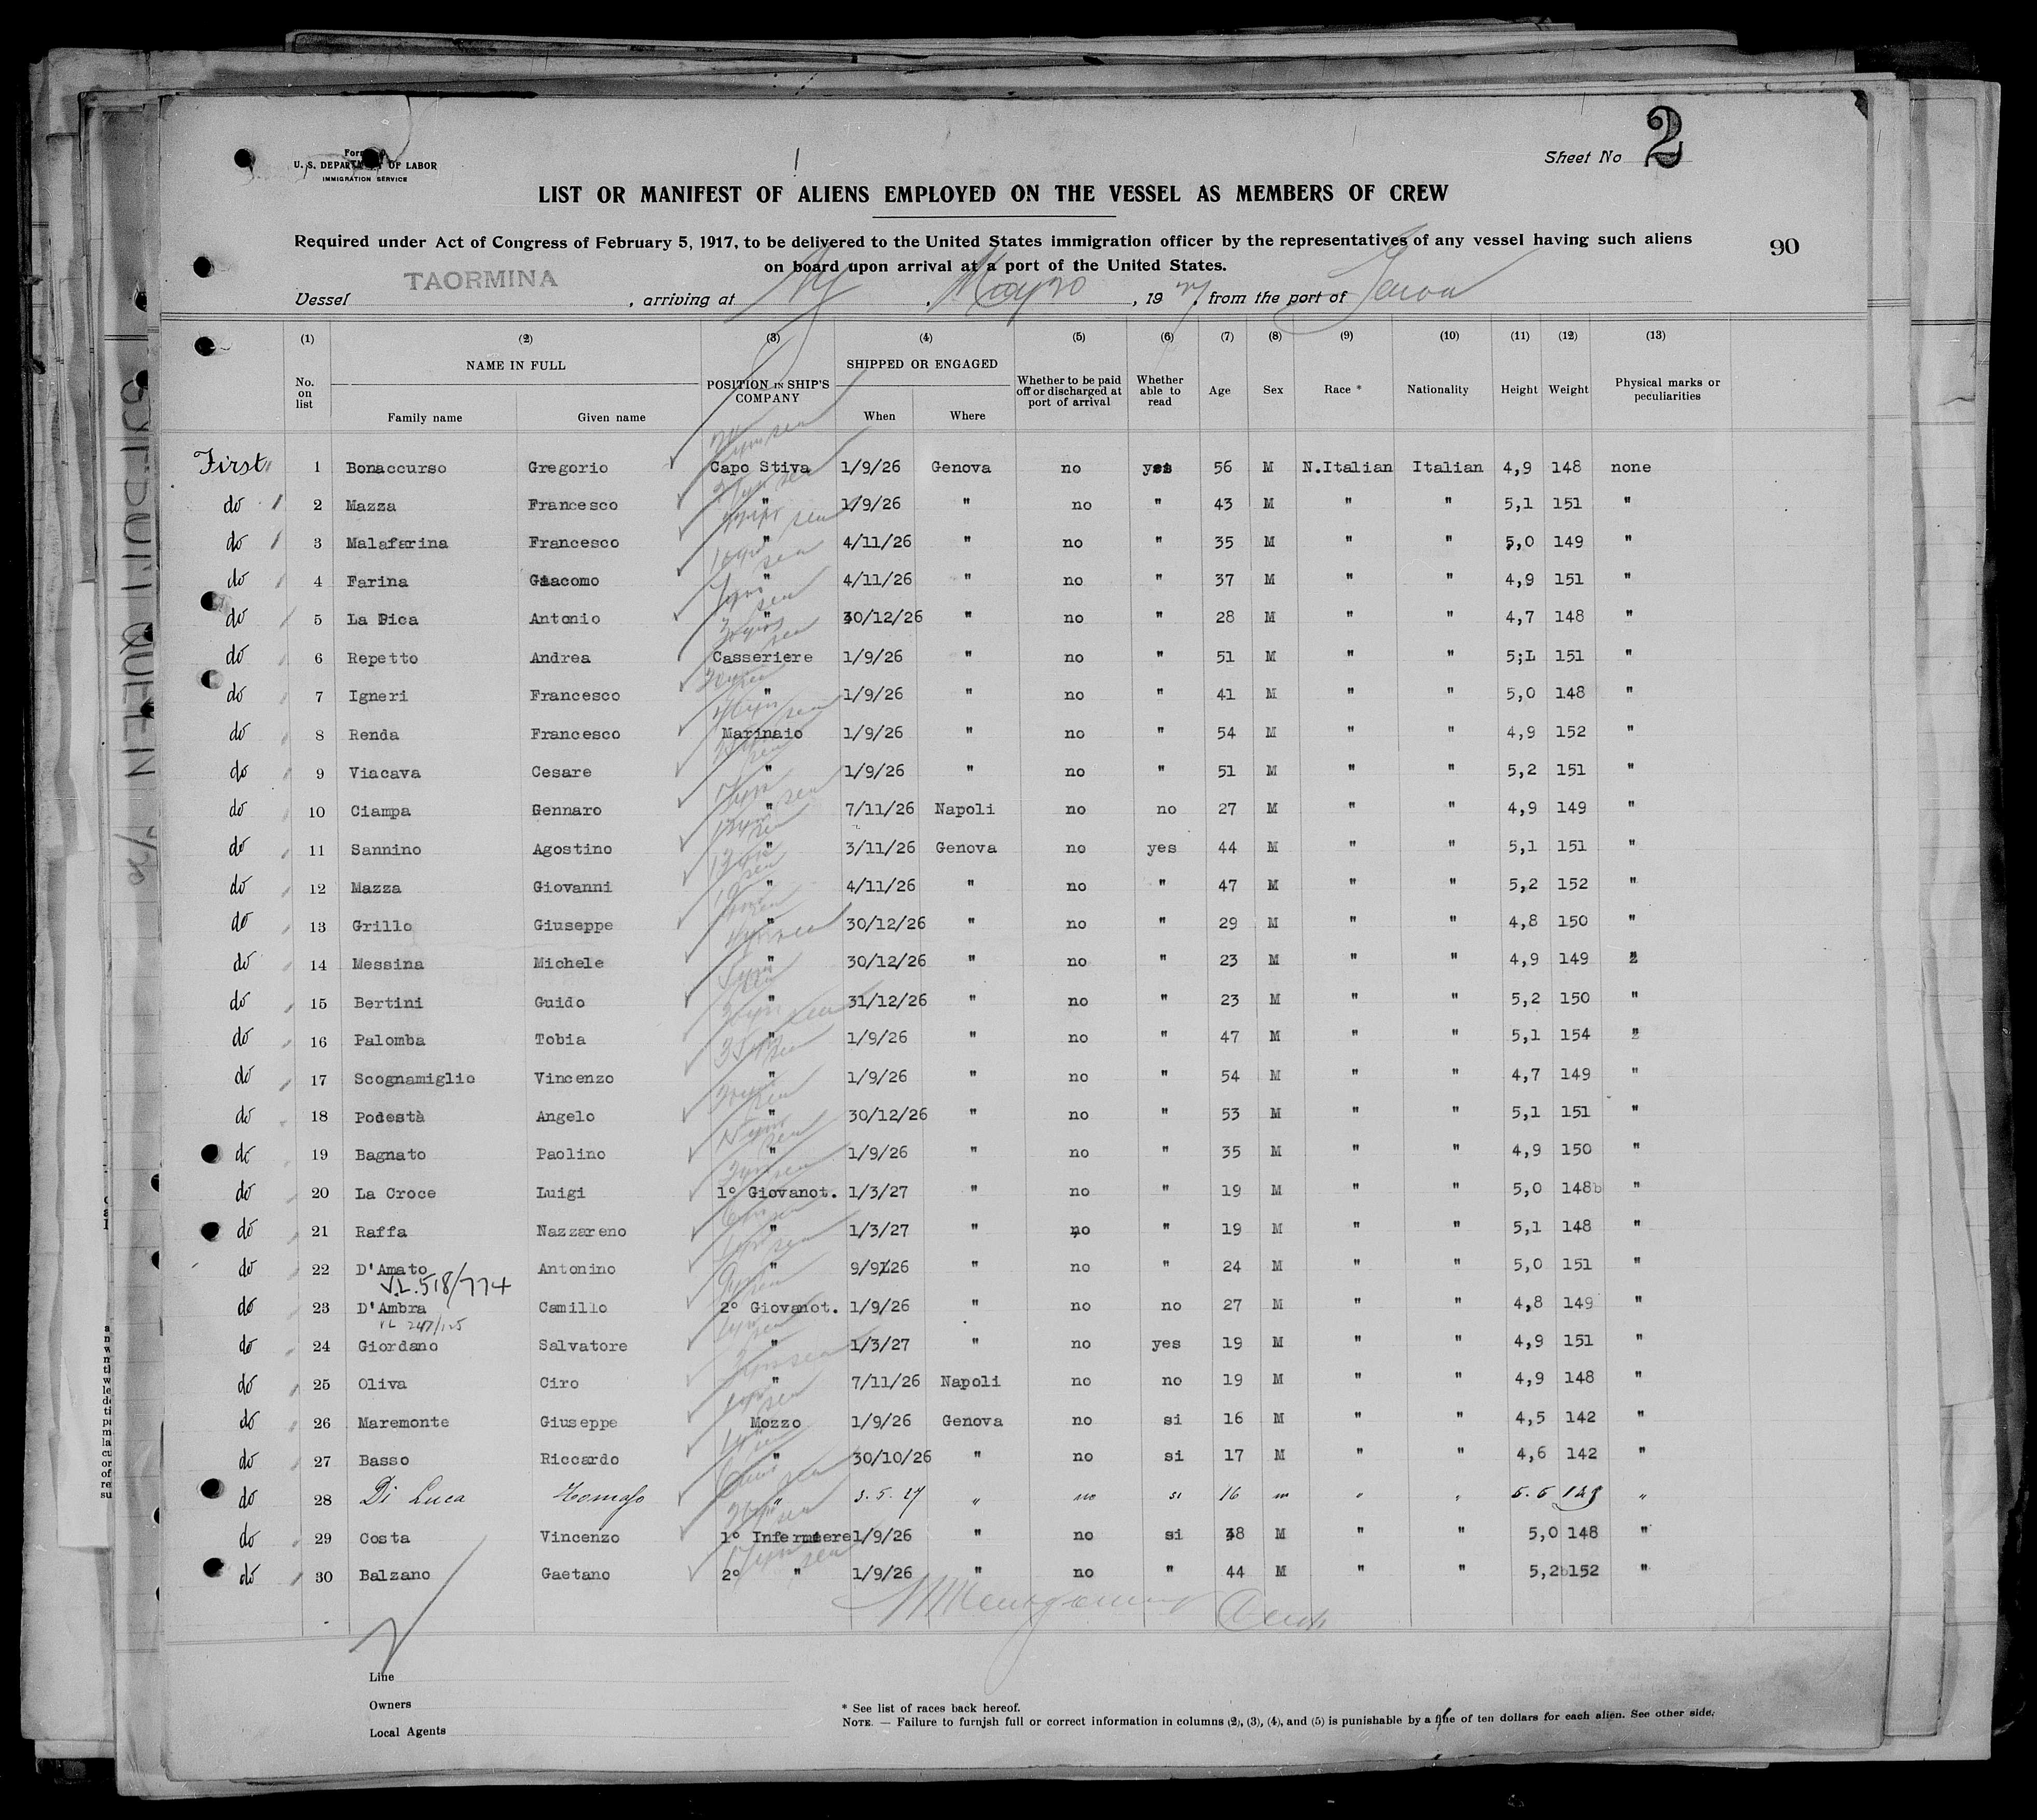 Sheet No 2
U. S. DEPARTMENT OF LABOR
IMMIGRATION SERVICE
LIST OR MANIFEST OF ALIENS EMPLOYED ON THE VESSEL AS MEMBERS OF CREW
Required under Act of Congress of February 5, 1917, to be delivered to the United States immigration officer by the representatives of any vessel having such aliens
on board upon arrival at a port of the United States.
90
Vessel TAORMINA, arriving at NY, May 20, 1927, from the port of Genoa
(1) (2) (3) (4) (5) (6) (7) (8) (9) (10) (11) (12) (13)
No. on list NAME IN FULL Family name Given name POSITION IN SHIP'S COMPANY SHIPPED OR ENGAGED When Where Whether to be paid off or discharged at port of arrival Whether able to read Age Sex Race * Nationality Height Weight Physical marks or peculiarities
First 1 Bonaccurso Gregorio Capo Stiva 1/9/26 Genova no yes 56 M N.Italian Italian 4,9 148 none
do 2 Mazza Francesco " 1/9/26 " no " 43 M " " 5,1 151 "
do 3 Malafarina Francesco " 4/11/26 " no " 35 M " " 5,0 149 "
do 4 Farina Giacomo " 4/11/26 " no " 37 M " " 4,9 151 "
do 5 La Pica Antonio " 30/12/26 " no " 28 M " " 4,7 148 "
do 6 Repetto Andrea Casseriere 1/9/26 " no " 51 M " " 5;L 151 "
do 7 Igneri Francesco " 1/9/26 " no " 41 M " " 5,0 148 "
do 8 Renda Francesco Marinaio 1/9/26 " no " 54 M " " 4,9 152 "
do 9 Viacava Cesare " 1/9/26 " no " 51 M " " 5,2 151 "
do 10 Ciampa Gennaro " 7/11/26 Napoli no no 27 M " " 4,9 149 "
do 11 Sannino Agostino " 3/11/26 Genova no yes 44 M " " 5,1 151 "
do 12 Mazza Giovanni " 4/11/26 " no " 47 M " " 5,2 152 "
do 13 Grillo Giuseppe " 30/12/26 " no " 29 M " " 4,8 150 "
do 14 Messina Michele " 30/12/26 " no " 23 M " " 4,9 149 "
do 15 Bertini Guido " 31/12/26 " no " 23 M " " 5,2 150 "
do 16 Palomba Tobia " 1/9/26 " no " 47 M " " 5,1 154 "
do 17 Scognamiglio Vincenzo " 1/9/26 " no " 54 M " " 4,7 149 "
do 18 Podestà Angelo " 30/12/26 " no " 53 M " " 5,1 151 "
do 19 Bagnato Paolino " 1/9/26 " no " 35 M " " 4,9 150 "
do 20 La Croce Luigi 1º Giovanot. 1/3/27 " no " 19 M " " 5,0 148b "
do 21 Raffa Nazzareno " 1/3/27 " no " 19 M " " 5,1 148 "
do 22 D'Amato Antonino " 9/9/26 " no " 24 M " " 5,0 151 "
V.L. 518/774
do 23 D'Ambra Camillo 2º Giovanot. 1/9/26 " no no 27 M " " 4,8 149 "
VL 247/125
do 24 Giordano Salvatore " 1/3/27 " no yes 19 M " " 4,9 151 "
do 25 Oliva Ciro " 7/11/26 Napoli no no 19 M " " 4,9 148 "
do 26 Maremonte Giuseppe Mozzo 1/9/26 Genova no si 16 M " " 4,5 142 "
do 27 Basso Riccardo " 30/10/26 " no si 17 M " " 4,6 142 "
do 28 Di Luca Tomaso " 3.5.27 " no si 16 m " " 5.5 "
do 29 Costa Vincenzo 1º Infermiere 1/9/26 " no si 38 M " " 5,0 148 "
do 30 Balzano Gaetano 2º " 1/9/26 " no " 44 M " " 5,2b152 "
Line
Owners
Local Agents
* See list of races back hereof.
NOTE. — Failure to furnjsh full or correct information in columns (2), (3), (4), and (5) is punishable by a fine of ten dollars for each alien. See other side.